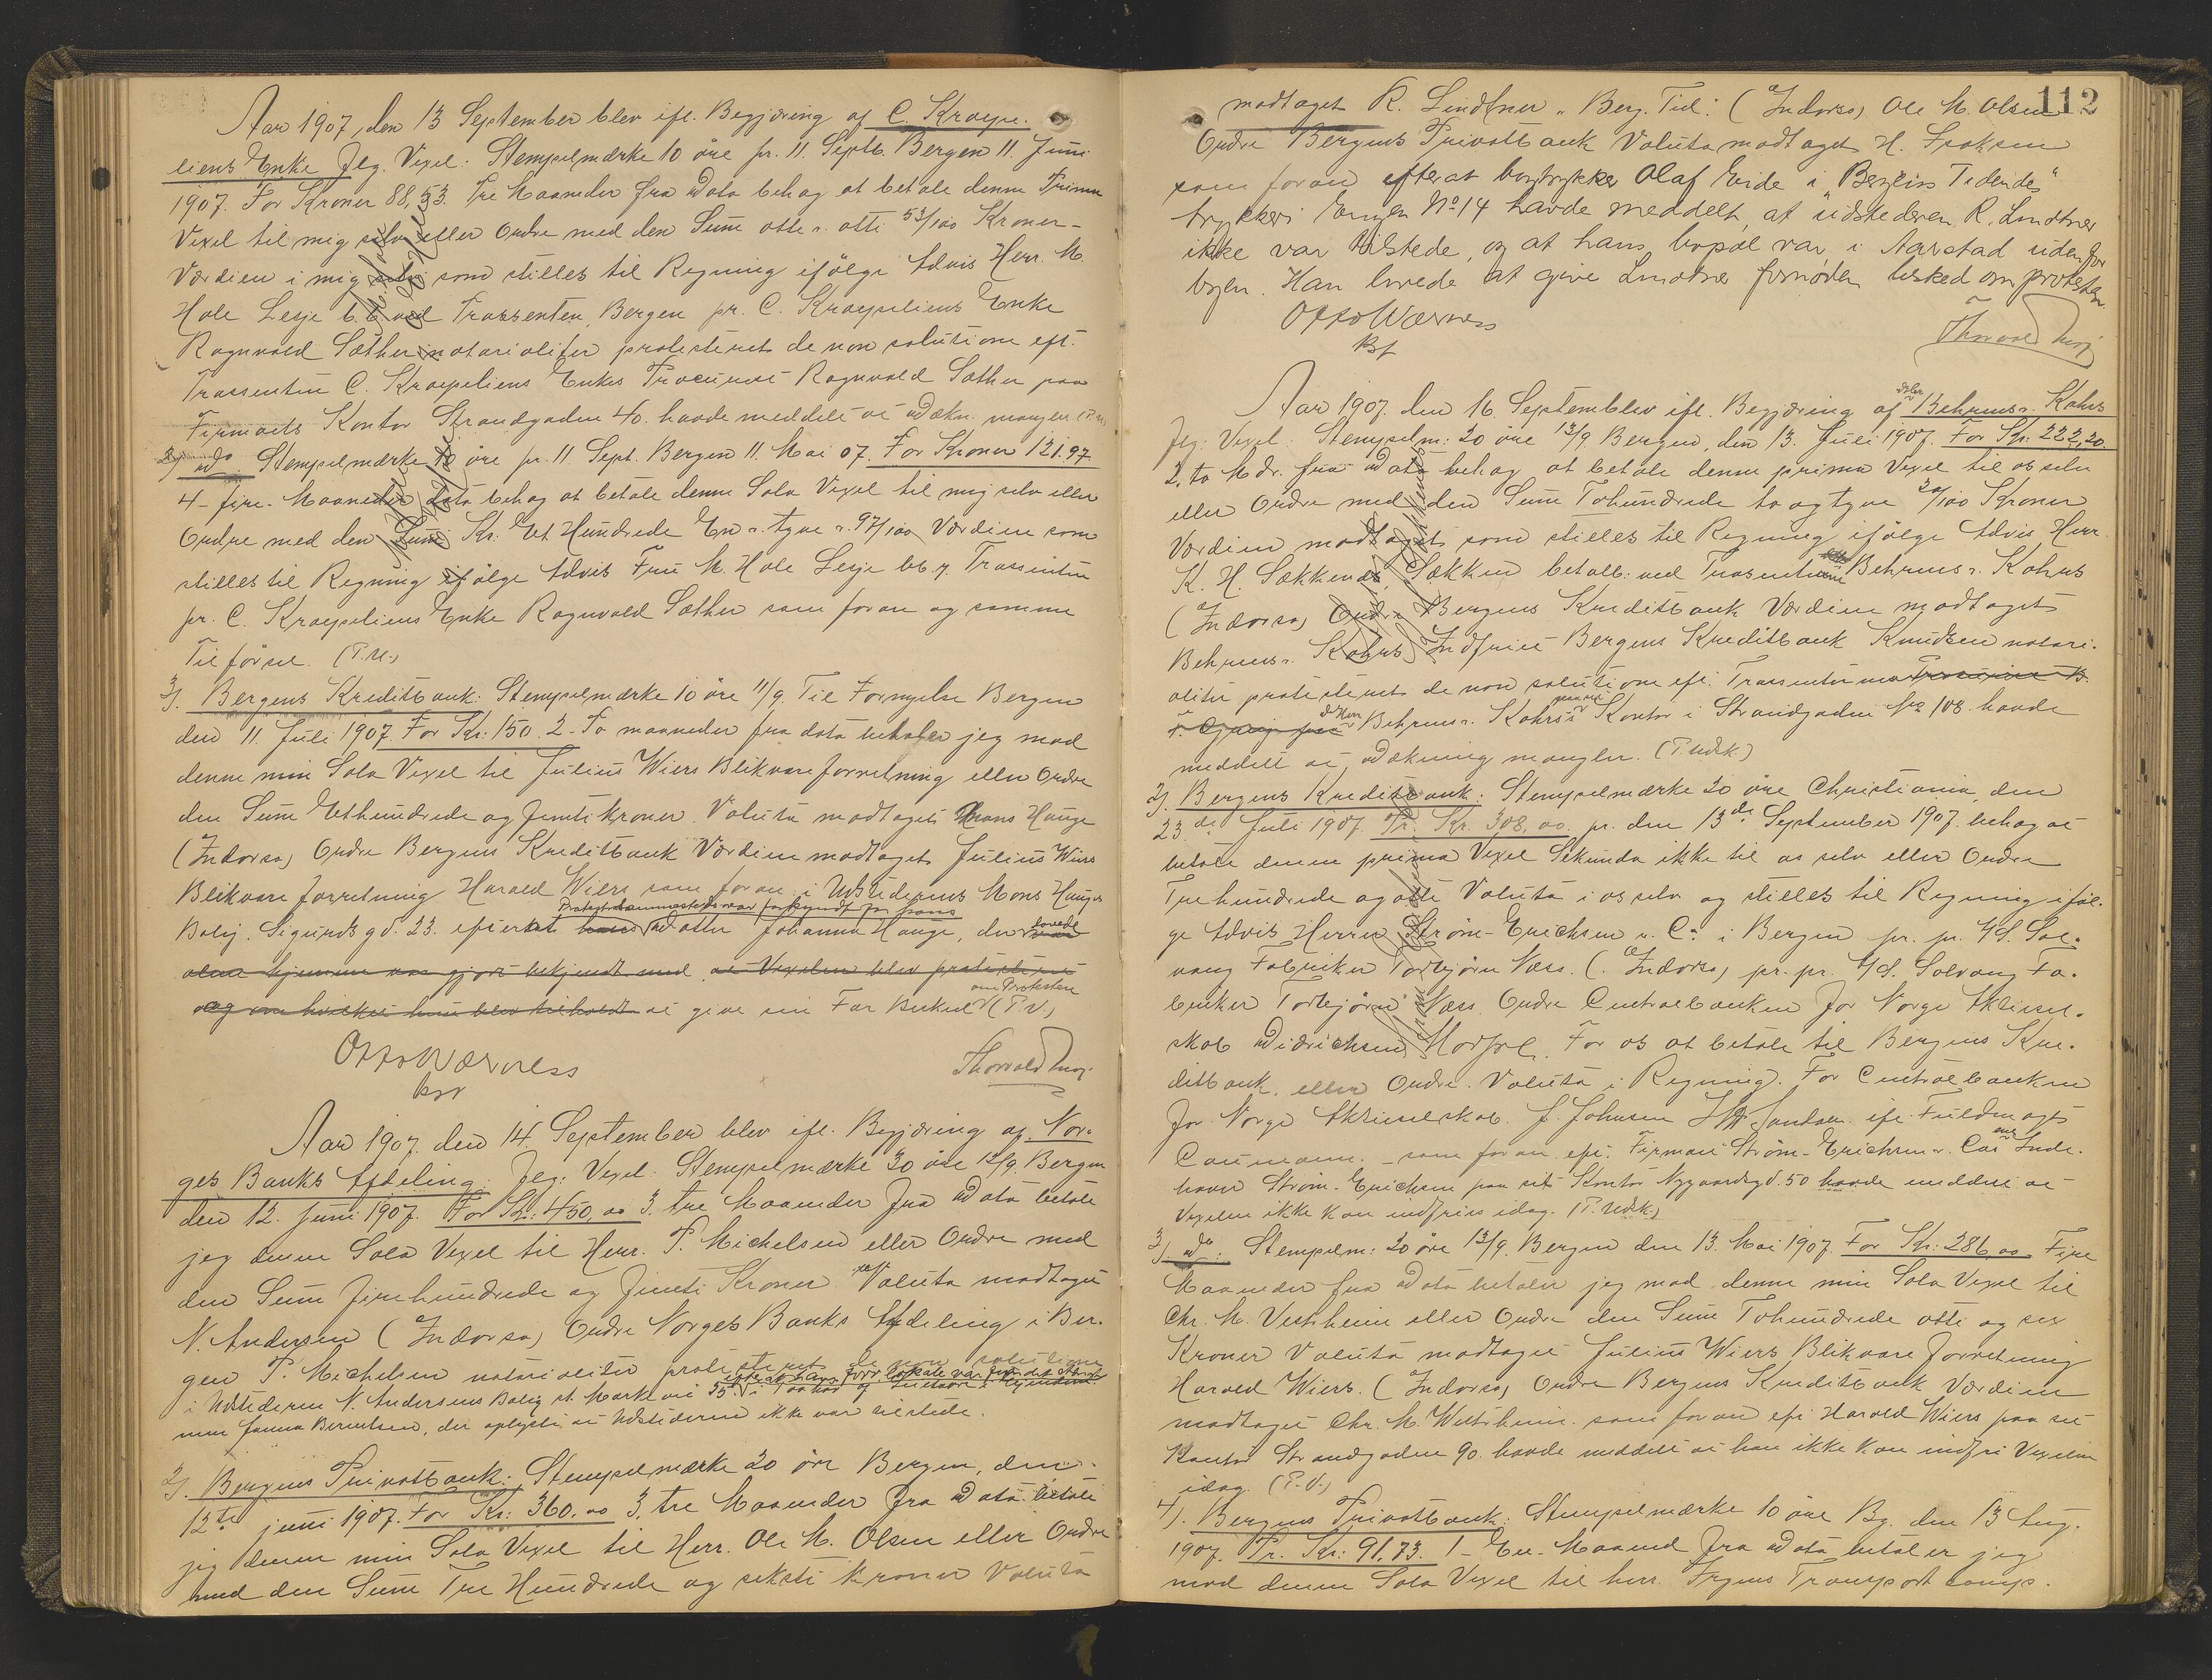 Aar 1907, den 13 September blev efl. Begjæring af C. Kraepe-
liens Enke flg. Vexel: Stempelmærke 10 öre pr. 11. Septb. Bergen 11. Juni
1907. For Kroner 88,53. Tre Maaneder fra Dato behag at betale denne Prima
Vexel til mig selv eller Ordre med den Sum otte & otti 53/100 Kroner-
Værdien i mig selv som stilles til Regning ifölge Advis Herr. M.
Hole Lesje b.b. ved Trassenten, Bergen pr. C. Kraepeliens Enke
Ragnvald Sæther notarialiter protesteret de non solutione eft.
Trassenten C. Kraepeliens Enkes Procurist Ragnvald Sæther paa
Firmaets Kontor Strandgaden 40. havde meddelt at Dækn. mangler
2) do Stempelmærke 10 öre pr. 11 Sept. Bergen 11. Mai 07. For Kroner 121.97
4- fire- Maaneder data behag at betale denne Sola Vexel til mig selv eller
Ordre med den Sum Kr. Et Hundrede En & tyve & 97/100 Værdien som
stilles til Regning ifölge Advis Fru M. Hole Lesje bb. Trassenten
pr. C. Kraepeliens Enke Ragnvald Sæther som foran og samme
Tilförsel. (P.U.)
3) Bergens Kreditbank: Stempelmærke 10 öre 11/9 Til Fornyelse Bergen
den 11. Juli 1907. For Kr: 150. 2- To maaneder fra dato behager jeg mod
denne min Sola Vexel til Julius Wiers Blikvareforretning eller Ordre
den Sum Ethundrede og femti kroner. Valuta modtaget Mons Hauge
(Indorso) Ordre Bergens Kreditbank Værdien modtaget Julius Wiers
Blikvare forretning Harald Wiers som foran i Udstederens Mons Hauges
Protest
Bolig. Sigurds gd. 23. efterat hans Datter Johanna Hauge, der lovede
alene hjemme var gjort bekjendt med at Vexelen blev protesteret
om Protesten
og om hvilket hun blev tilholdt at give sin Far Besked (P.U.)
Otto Wærness
Thorvald
Aar 1907. den 14. September blev efl. Begjæring af Nor-
ges Banks Afdeling flg: Vexel. Stempelmærke 30 öre 12/9. Bergen
den 12. Juni 1907. For Kr: 450,00 3. tre Maaneder fra Dato betale
jeg denne Sola Vexel til Herr. P. Michelsen eller Ordre med
den Sum firehundrede og femti Kroner Valuta modtaget
N. Andersen (Indorso) Ordre Norges Banks Afdeling i Ber-
gen P. Michelsen notarialiter protesteret de non solutione
i Udstederen N. Andersens Bolig st. Markvei 55
efterat hans Forr. Lokale var
Jenna Berentsen, der oplyste at Udstederen ikke var tilstede.
2). Bergens Privatbank: Stempelmærke 20 öre Bergen, den
12te juni 1907. For Kr: 360.00 3. tre Maaneder fra Dato betale
jeg denne min Sola Vexel til Herr. Ole M. Olsen eller Ordre
med den Sum Tre Hundrede og seksti Kroner Valuta
112
modtaget R. Lindtner "Berg. Tid." (Indorso) Ole M. Olsen
Ordre Bergens Privatbank Valuta modtaget H. Isaksen
som foran efterat bogtrykker Olaf Eide i "Bergens Tidendes"
trykkeri Engen No 14 havde meddelt, at udstederen R. Lindtner
ikke var tilstede, og at hans bopæl var i Aarstad udenfor
byen. Han lovede at give Lindtner fornøden besked om protesten
Otto Wærness
Thorvald
Aar 1907. den 16. September blev efl. Begjæring af Behrens & Kahrs
flg: Vexel. Stempelm: 20 öre 13/9 Bergen, den 13. Juli 1907. For Kr: 222,20
2. to Mdr. fra Dato behag at betale denne prima Vexel til os selv
eller Ordre med den Sum Tohundrede to og tyve 20/100 Kroner
Værdien modtaget som stilles til Regning ifölge Advis Herr
K. H. Sækkenæs, Sækken betalb: ved Trasenten Behrens & Kahrs
(Indorso) Ordre Bergens Kreditbank Værdien modtaget
Behrens & Kahrs Indfriet Bergens Kreditbank Knudsen notari-
aliter protesteret de non solutione eft. Trassenterne
Behrens & Kahrs's Kontor i Strandgaden No 108 havde
meddelt at Dækning mangler. (P. Udsk)
2). Bergens Kreditbank: Stempelmærke 20 öre Christiania, den
23de Juli 1907. Pr. Kr. 308,00 pr. den 13de September 1907. behag at
betale denne prima Vexel Sekunda ikke til os selv eller Ordre
Trehundrede og otte Valuta i os selv og stilles til Regning iföl-
ge Advis Herrer Ström-Erichsen & Co i Bergen pr. pr. A/S. Sol-
vang Fabriker Torbjørn Næss. (Indorso) pr. pr. A/S. Solvang Fa-
briker Torbjørn Næss Ordre Centralbanken for Norge Aktiesel-
skab Didrichsen For os at betale til Bergens Kre-
ditbank eller Ordre. Valuta i Regning. For Centralbanken
for Norge Aktieselskab J. Johnsen Sandam. efl. Fuldmagt
Caumann. - som foran eft. Firmaet Ström-Erichsen & Co's Inde-
haver Ström-Erichsen paa sit Kontor Nygaardsgd. 50 havde meddelt at
Vexelen ikke kan indfries idag. (P. Udsk)
3). do: Stempelm: 20 öre 13/9. Bergen den 13. Mai 1907. For Kr: 286,00 Fire
Maaneder fra Dato betaler jeg mod denne min Sola Vexel til
Chr. M. Vestrheim eller Ordre den Sum Tohundrede otti og sex
Kroner Valuta modtaget Julius Wiers Blikvare forretning
Harald Wiers. (Indorso) Ordre Bergens Kreditbank Værdien
modtaget Chr. M. Westrheim. som foran eft Harald Wiers paa sit
Kontor Strandgaden 90. havde meddelt at han ikke kan indfri Vexelen
idag. (P.U.)
4). Bergens Privatbank: Stempelmærke 10 öre Bg. den 13 Aug.
1907. Pr. Kr: 91.73. 1- En- Maaned fra Dato betaler jeg
mod denne Sola Vexel til herr. Transport comp.